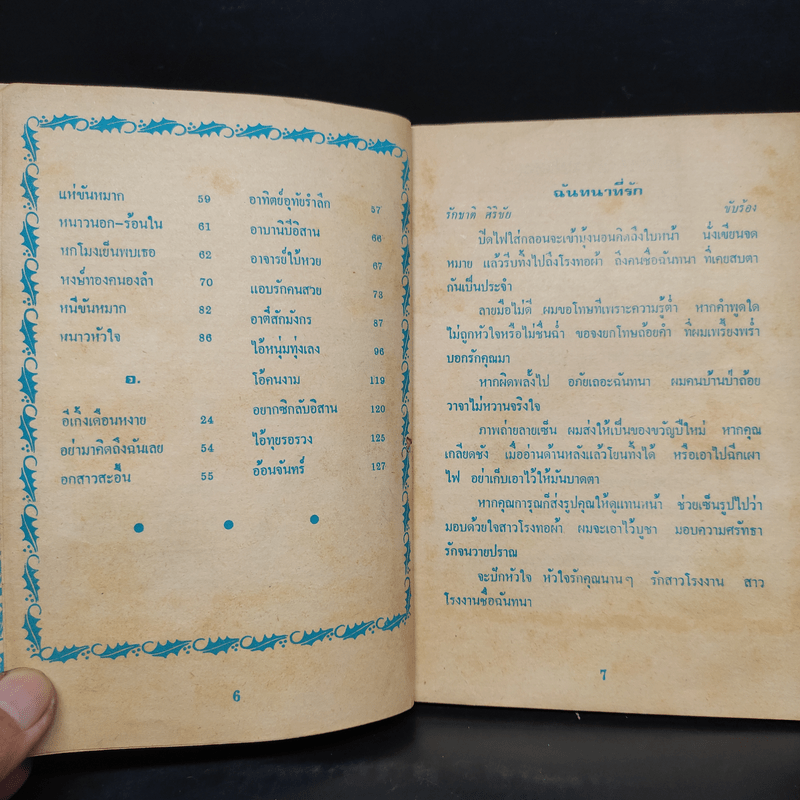 แห่ขันหมาก 59
หนาวนอก-ร้อนใน 61
หกโมงเย็นพบเธอ 62
หงษ์ทองคนองลำ 70
หนีขันหมาก 82
หนาวหัวใจ 86
อ.
อีเก้งเดือนหงาย 24
อย่ามาคิดถึงฉันเลย 54
อกสาวสะอื้น 55
อาทิตย์อุทัยรำลึก 57
อาบานิบีอิสาน 66
อาจารย์ใบ้หวย 67
แอบรักคนสวย 73
อาตี๋สักมังกร 87
ไอ้หนุ่มทุ่งเลง 96
โอ้คนงาม 119
อยากซิกลับอิสาน 120
ไอ้ทุยรอรวง 125
อ้อนจันทร์ 127
6
ฉันทนาที่รัก
รักชาติ ศิริชัย ขับร้อง
ปิดไฟใส่กลอนจะเข้ามุ้งนอนคิดถึงใบหน้า นั่งเขียนจด
หมาย แล้วรีบทิ้งไปถึงโรงทอผ้า ถึงคนชื่อฉันทนา ที่เคยสบตา
กันเป็นประจำ
ลายมือไม่ดี ผมขอโทษที่เพราะความรู้ต่ำ หากคำพูดใด
ไม่ถูกหัวใจหรือไม่ชื่นฉ่ำ ขอจงยกโทษถ้อยคำ ที่ผมเพรียงพร่ำ
บอกรักคุณมา
หากผิดพลั้งไป อภัยเถอะฉันทนา ผมคนบ้านป่าถ้อย
วาจาไม่หวานจริงใจ
ภาพถ่ายลายเซ็น ผมส่งให้เป็นของขวัญปีใหม่ หากคุณ
เกลียดชัง เมื่ออ่านด้านหลังแล้วโยนทิ้งได้ หรือเอาไปฉีกเผา
ไฟ อย่าเก็บเอาไว้ให้มันบาดตา
หากคุณการุณก็ส่งรูปคุณให้ดูแทนหน้า ช่วยเซ็นรูปไปว่า
มอบด้วยใจสาวโรงทอผ้า ผมจะเอาไว้บูชา มอบความศรัทธา
รักจนวายปราณ
จะปักหัวใจ หัวใจรักคุณนานๆ รักสาวโรงงาน สาว
โรงงานชื่อฉันทนา
7